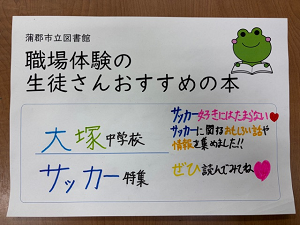 蒲郡市立図書館
職場体験の
生徒さんおすすめの本
大塚中学校
サッカー特集
サッカー好きにはたまらない
サッカーに関するおもしろい話や
情報を集めました!!
ぜひ読んでみてね